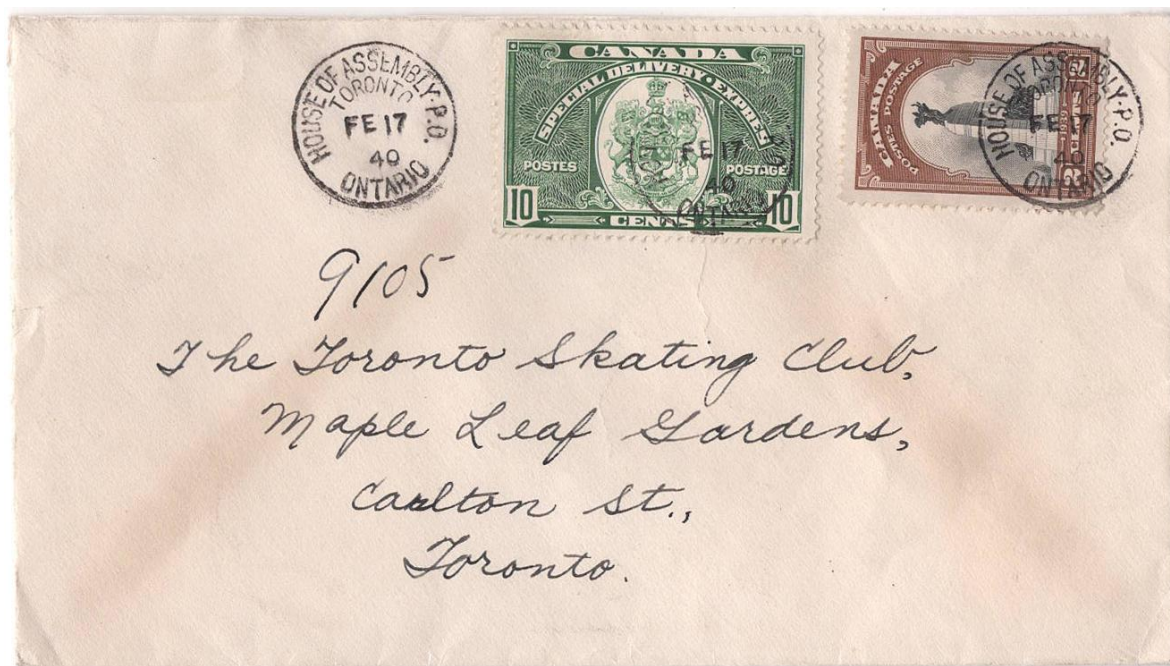 HOUSE OF ASSEMBLY·P.O.
TORONTO
FE 17
40
ONTARIO
CANADA
SPECIAL DELIVERY·EXPRES
POSTES POSTAGE
10 CENTS 10
FE 17
40
ONTARIO
CANADA
POSTES POSTAGE
2 2
1939
HOUSE OF ASSEMBLY·P.O.
TORONTO
FE 17
40
ONTARIO
9105
The Toronto Skating Club,
Maple Leaf Gardens,
Carlton St.,
Toronto.